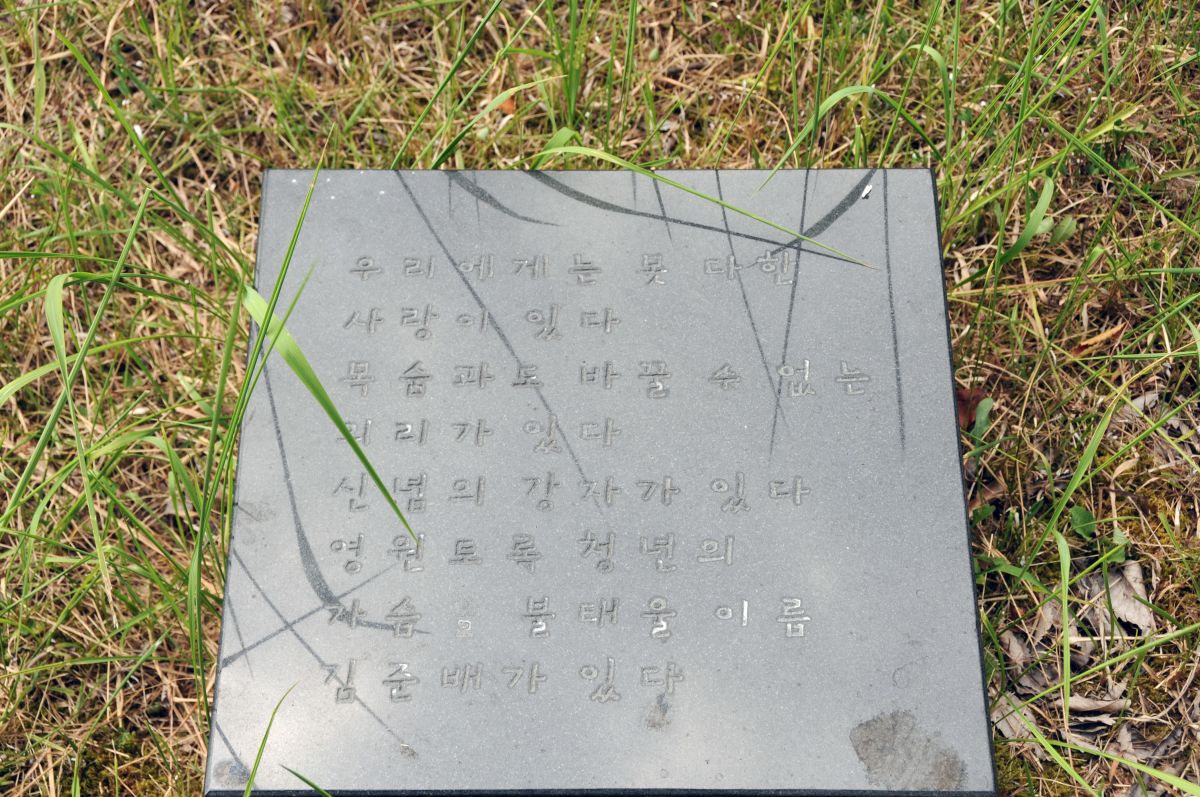 우리에게는 못 다한
사랑이 있다
목숨과도 바꿀 수 없는
의리가 있다
신념의 강자가 있다
영원토록 청년의
가슴을 불태울 이름
김준배가 있다